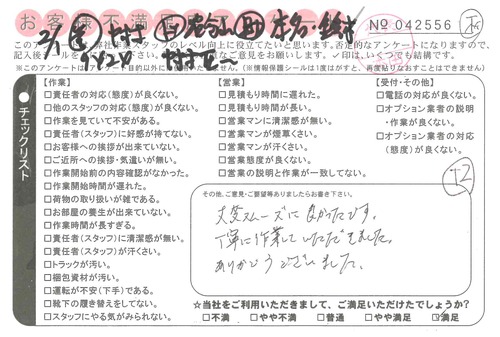 お客様不満足
№ 042556
このア
社作業スタッフのレベル向上に役立てたいと思います。否定的なアンケートになりますので、
記入後シールを
なご意見をお願いします。✓印は、いくつでも結構です。
※このアンケートは
目的以外に
(※情報保護シールは1度はがすと、再度貼りなおすことはできません)
●チェックリスト
【作業】
□責任者の対応(態度)が良くない。
□他のスタッフの対応(態度)が良くない。
□作業を見ていて不安がある。
□責任者(スタッフ)に好感が持てない。
□お客様への挨拶が出来ていない。
□ご近所への挨拶・気遣いが無い。
□作業開始前の内容確認がなかった。
□作業開始時間が遅れた。
□荷物の取り扱いが雑である。
□お部屋の養生が出来ていない。
□作業時間が長すぎる。
□責任者(スタッフ)に清潔感が無い。
□責任者(スタッフ)が汗くさい。
□トラックが汚い。
□梱包資材が汚い。
□運転が不安(下手)である。
□靴下の履き替えをしてない。
□スタッフにやる気がみられない。
【営業】
□見積もり時間に遅れた。
□見積もり時間が長い。
□営業マンに清潔感が無い。
□営業マンが煙草くさい。
□営業マンが汗くさい。
□営業態度が良くない。
□営業の説明と作業が一致してない。
【受付・その他】
□電話の対応が良くない。
□オプション業者の説明
・作業が良くない。
□オプション業者の対応
(態度)が良くない。
+2
その他、ご意見・ご要望等ありましたらお書き下さい。
大変スムーズに良かったです。
丁寧に作業していただきました。
ありがとうございました。
☆当社をご利用いただきまして、ご満足いただけたでしょうか?
□不満 □やや不満 □普通 □やや満足 ☑満足